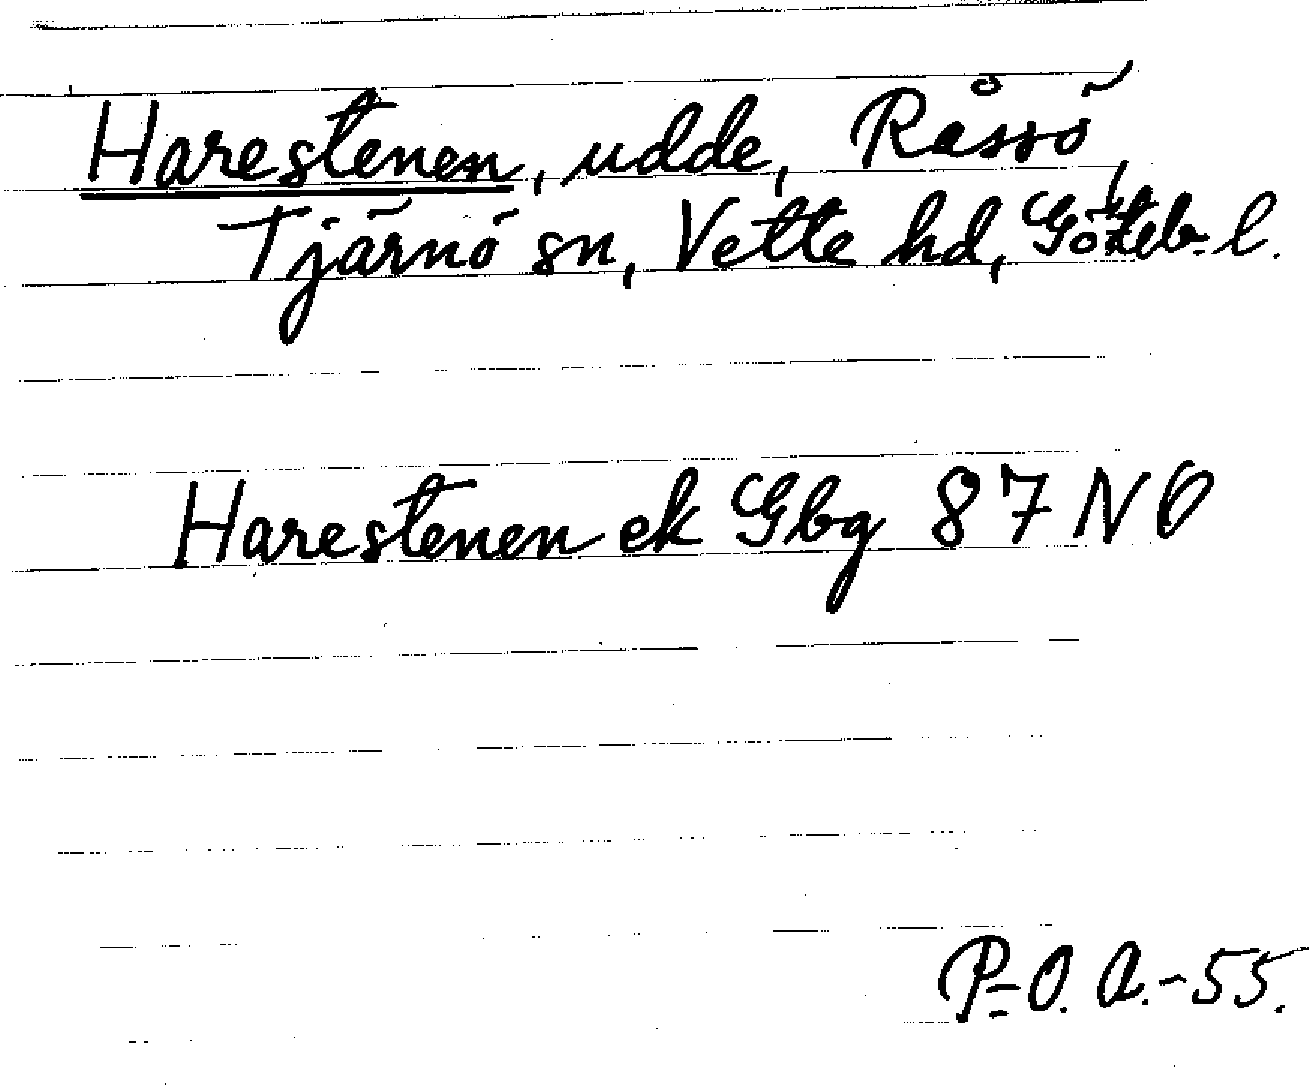 Harestenen, udde, Råssö,
Tjärnö sn, Vette hd, Göteb. l.
Harestenen ek Gbg 87 NO
P-O. A.-55.